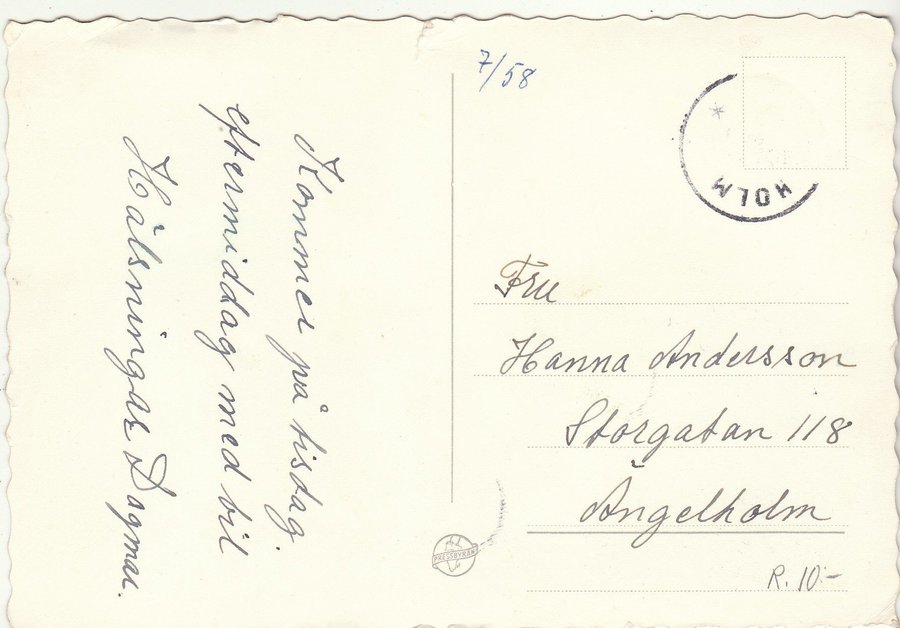 Kommer på tisdag.
eftermiddag med bil
Hälsningar Dagmar.
7/58
HOLM
Fru
Hanna Andersson
Storgatan 118
Ängelholm
PRESSBYRÅN
R. 10:-